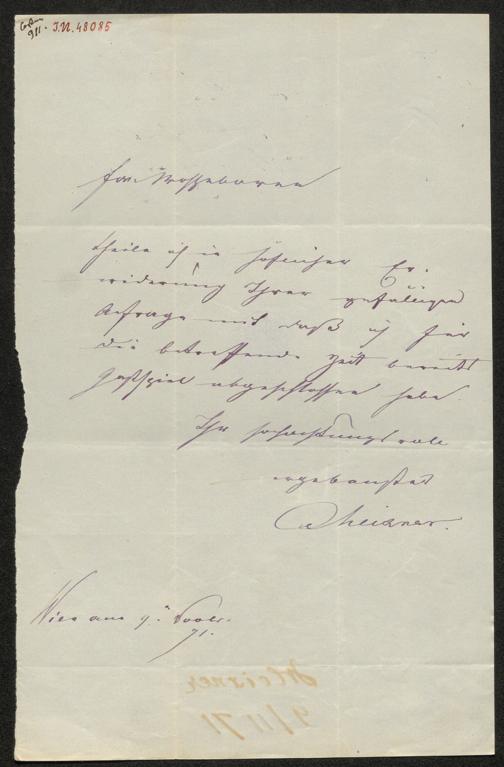 I.N. 48085
911.
Euer Wohlgeboren
theile ich in höflicher Er-
widerung Ihrer gefälligen
Anfrage mit daß ich für
die betreffende Zeit bereits
Gastspiel abgeschlossen habe.
Ihr hochachtungsvoll
ergebenster
Meixner.
Wien am 9. Novbr.
71.
Meixner
9/11 71